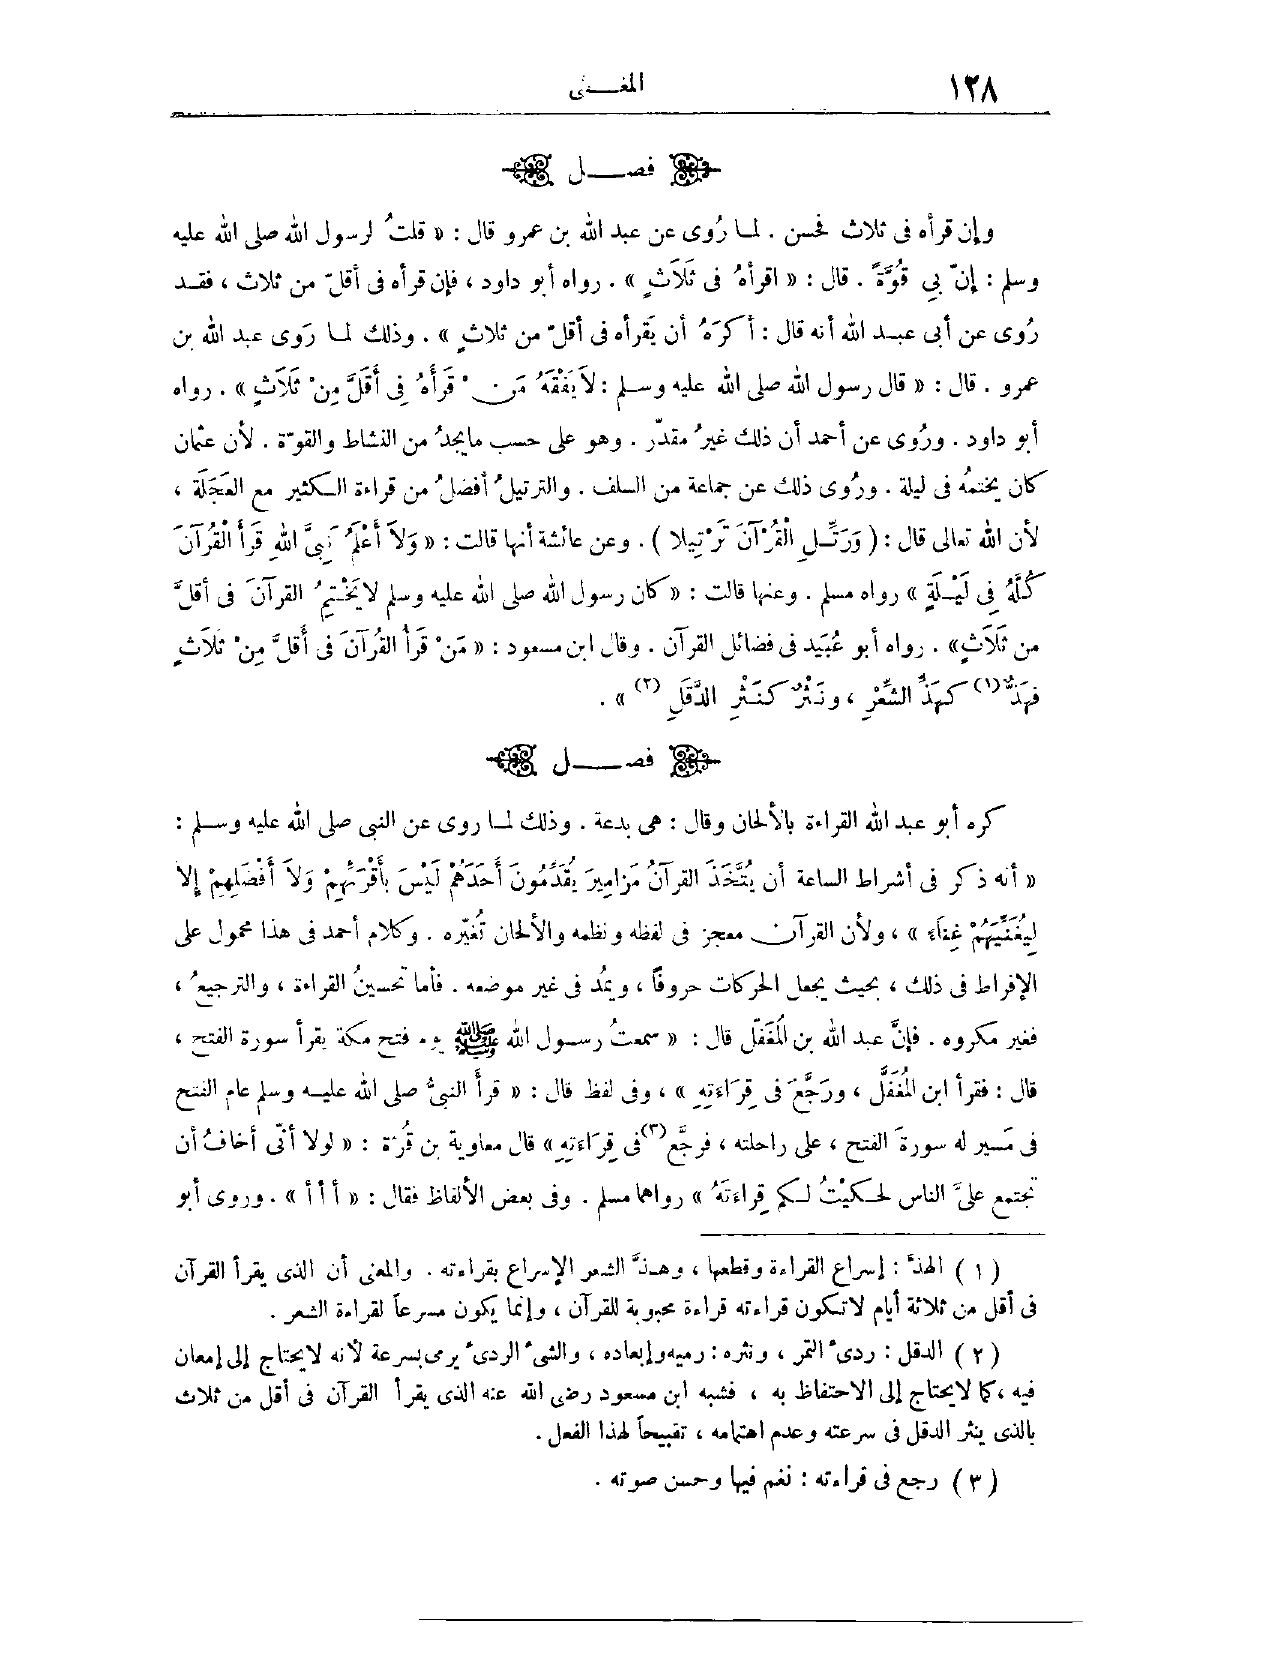 ١٢٨ المغـــنى
فصـــل
وإن قرأه فى ثلاث فحسن . لمـا رُوى عن عبد الله بن عمرو قال : « قلتُ لرسول الله صلى الله عليه
وسلم : إنّ بِي قُوَّةً . قال : « اقرأهُ فى ثَلَاَثٍ » . رواه أبو داود ، فإن قرأه فى أقلّ من ثلاث ، فقـد
رُوى عن أبى عبـد الله أنه قال : أَكرَهُ أن يَقرأه فى أقلّ من ثلاثٍ » . وذلك لمـا رَوى عبد الله بن
عمرو . قال : « قال رسول الله صلى الله عليه وسـلم : لاَ يَفْقَهُ مَن ْ قَرَأَهُ فِى أَقَلَّ مِنْ ثَلَاَثٍ » . رواه
أبو داود . ورُوى عن أحمد أن ذلك غيرُ مقدّر . وهو على حسب مايجدُ من النشاط والقوّة . لأن عثمان
كان يختمُه فى ليلة . ورُوى ذلك عن جماعة من السلف . والترتيلُ أفضلُ من قراءة الـكثير مع العَجَلَة ،
لأن الله تعالى قال : ( وَرَتِّـلِ الْقُرْآنَ تَرْتِيلا ) . وعن عائشة أنها قالت : « وَلاَ أَعْلَمُ نَبِىَّ اللهِ قَرَأَ الْقُرآنَ
كُلَّهُ فِى لَيْـلَةٍ » رواه مسلم . وعنها قالت : « كان رسول الله صلى الله عليه وسلم لا يَخْتِمُ القرآنَ فى أقلَّ
من ثَلَاَثٍ» . رواه أبو عُبَيد فى فضائل القرآن . وقال ابن مسعود : « مَنْ قَرَأَ القُرآنَ فى أَقَلَّ مِنْ ثَلَاثٍ
فَهَذٌّ (١) كَهَذِّ الشِّعْرِ ، ونَثْرٌ كَنَثْرِ الدَّقَلِ (٢) » .
فصـــل
كره أبو عبد الله القراءة بالألحان وقال : هى بدعة . وذلك لمـا روى عن النبى صلى الله عليه وسـلم :
« أنه ذكر فى أشراط الساعة أن يُتَّخَذَ القرآنُ مَزامِيرَ يُقَدِّمُونَ أَحَدَهُمْ لَيْسَ بأَقْرَئِهِمْ وَلاَ أَفْضَلِهِمْ إلا
لِيُغَنِّيَهُمْ غِناَءً » ، ولأن القرآن معجز فى لفظه ونظمه والألحان تُغيّره . وكلام أحمد فى هذا محمول على
الإفراط فى ذلك ، بحيث يجعل الحركات حروفاً ، ويمُد فى غير موضعه . فأما تحسينُ القراءة ، والترجيعُ ،
فغير مكروه . فإنَّ عبد الله بن المُغَفّل قال : « سمعتُ رسـول الله ﷺ يوم فتح مكة يقرأ سورة الفتح ،
قال : فقرأ ابن المُغَفَّل ، ورَجَّعَ فى قِرَاءَتِهِ » ، وفى لفظ قال : « قرأَ النبىُّ صلى الله عليـه وسلم عام الفتح
فى مَسير له سورةَ الفتح ، على راحلته ، فرجَّع (٣) فى قِرَاءَتِهِ » قال معاوية بن قُرّة : « لولا أنّى أخافُ أن
تجتمع علىَّ الناس لحـكيْتُ لـكم قِراءتَهُ » رواهما مسلم . وفى بعض الألفاظ فقال : « أ أ أ » . وروى أبو
( ١ ) الهذّ : إسراع القراءة وقطعها ، وهـذّ الشعر الإسراع بقراءته . والمعنى أن الذى يقرأ القرآن
فى أقل من ثلاثة أيام لاتـكون قراءته قراءة محبوبة للقرآن ، وإنما يكون مسرعاً لقراءة الشعر .
( ٢ ) الدقل : ردىء التمر ، ونثره : رميه وإبعاده ، والشىء الردىء يرمى بسرعة لأنه لايحتاج إلى إمعان
فيه ، كما لايحتاج إلى الاحتفاظ به ، فشبه ابن مسعود رضى الله عنه الذى يقرأ القرآن فى أقل من ثلاث
بالذى ينثر الدقل فى سرعته وعدم اهتمامه ، تقبيحاً لهذا الفعل .
( ٣ ) رجع فى قراءته : نغم فيها وحسن صوته .